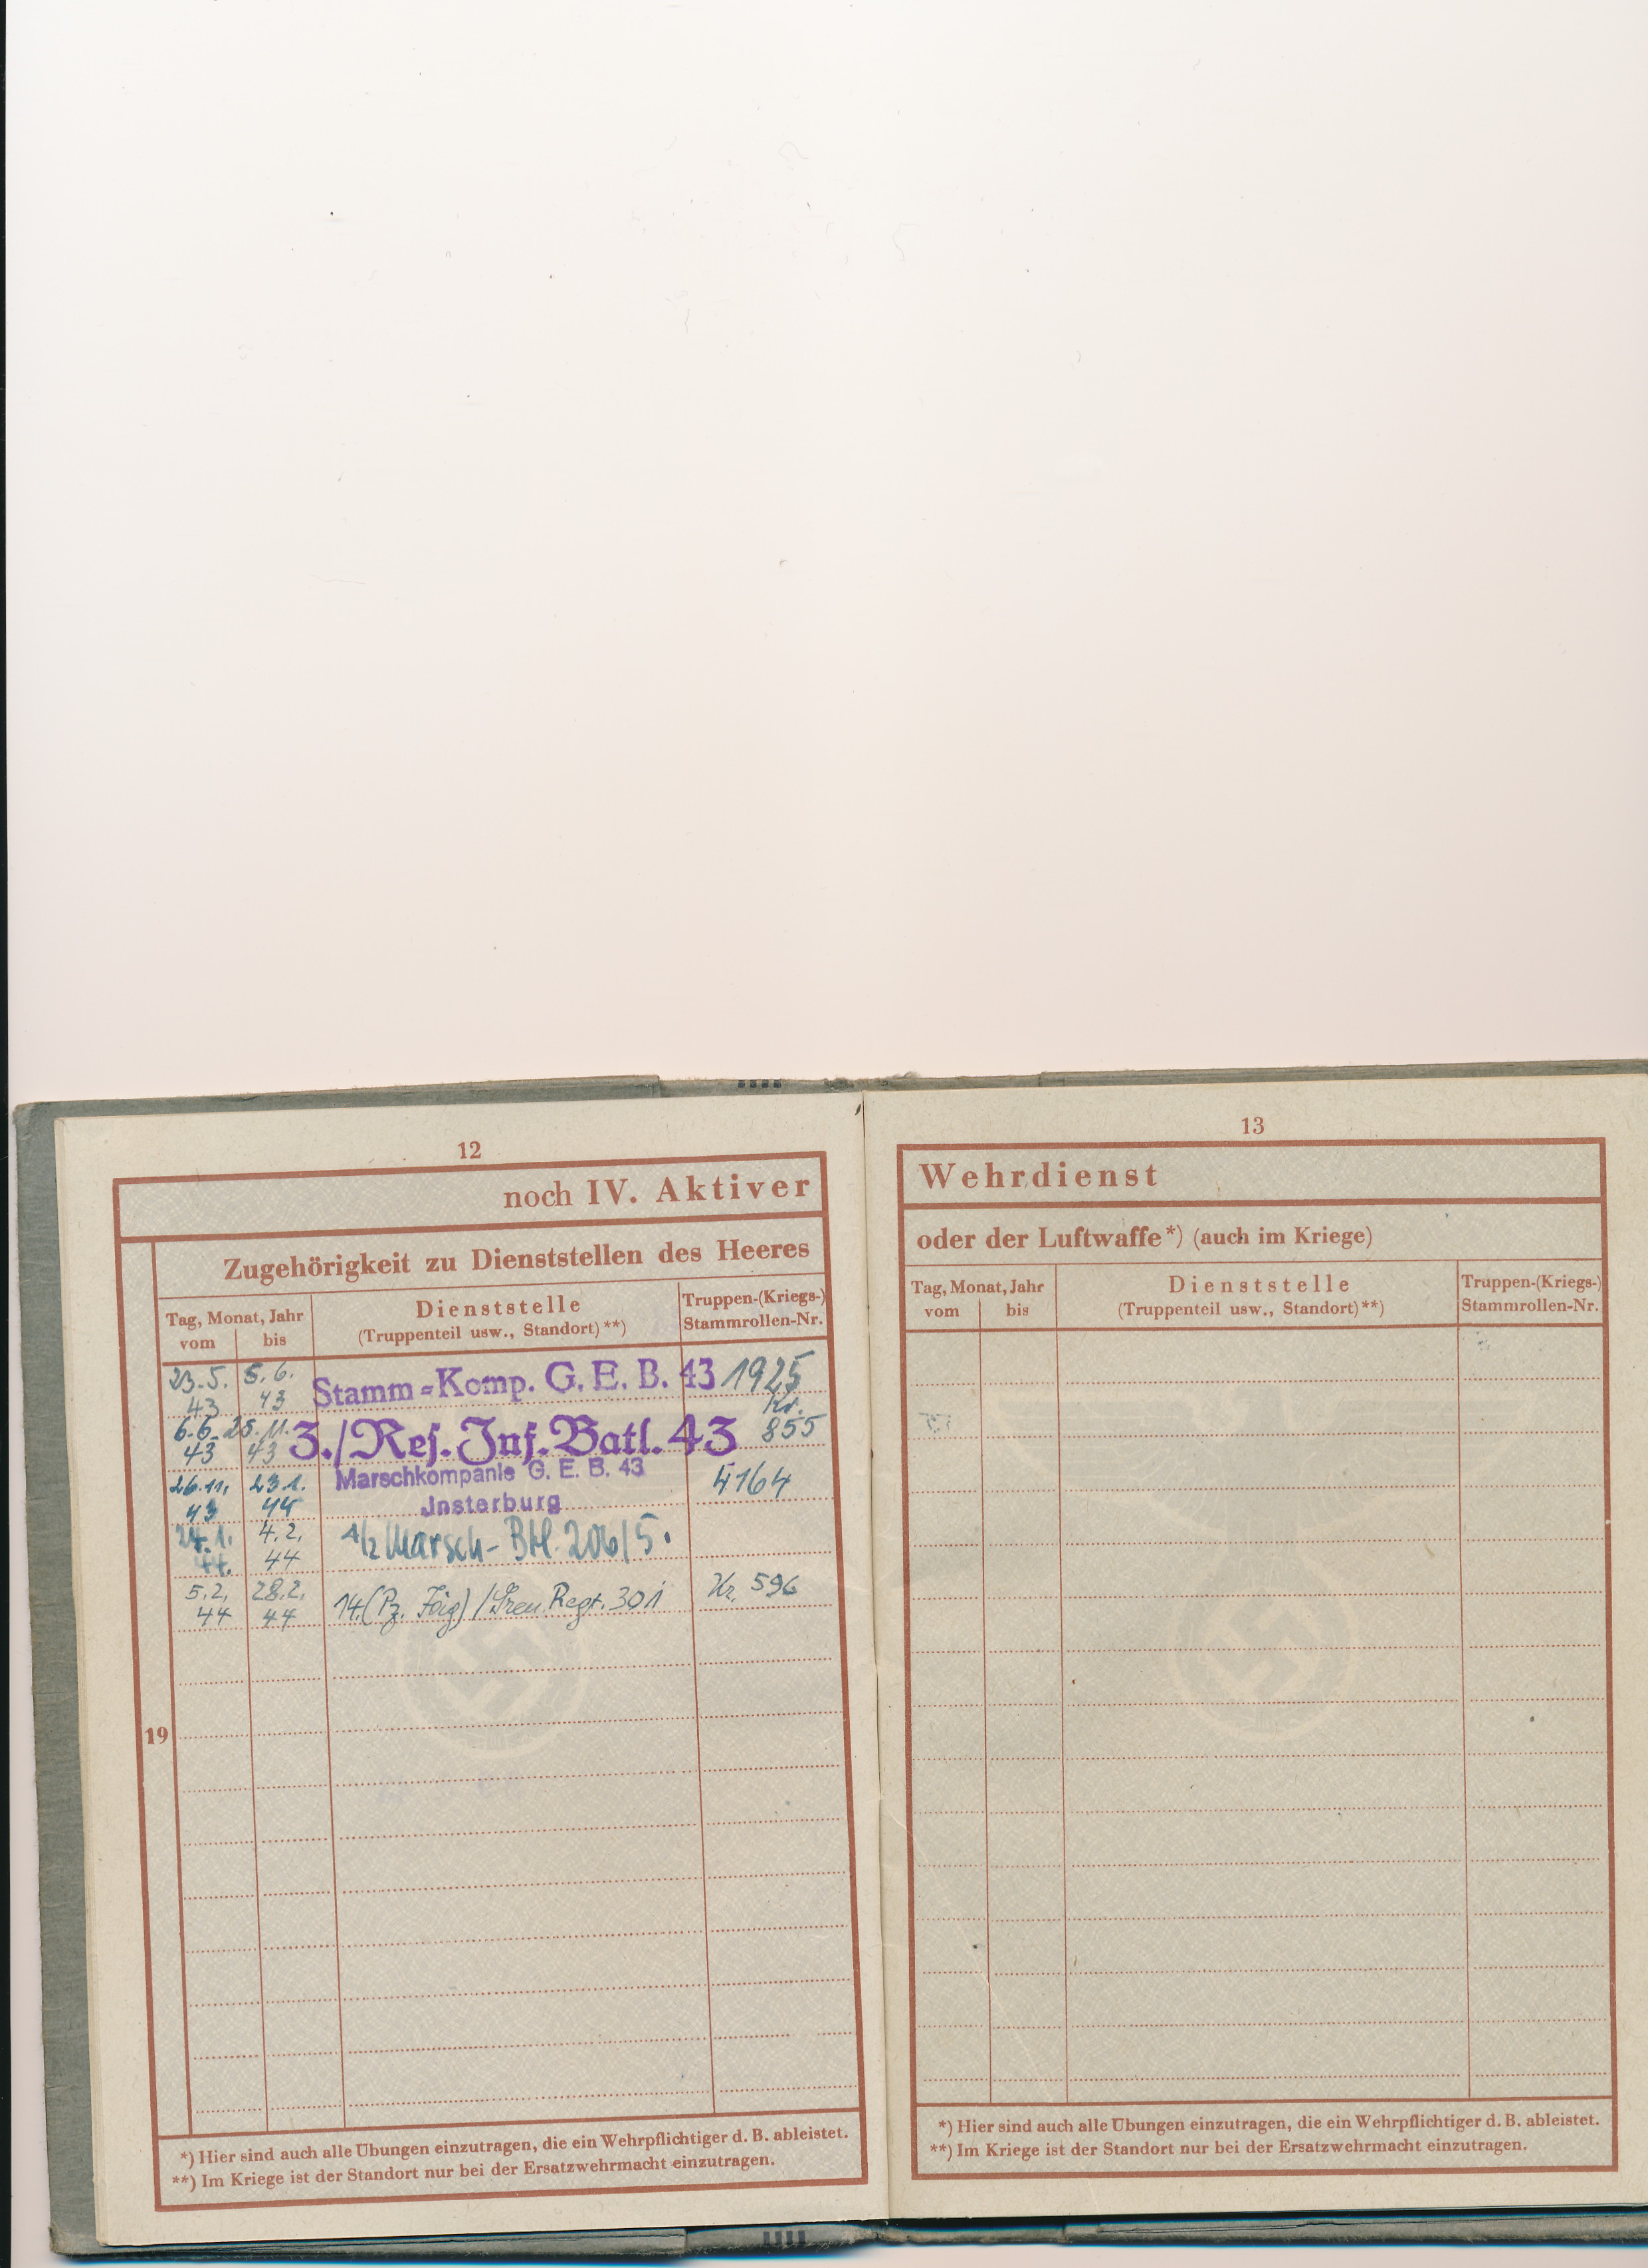 12
noch IV. Aktiver
Zugehörigkeit zu Dienststellen des Heeres
Tag, Monat, Jahr
vom bis
Dienststelle
(Truppenteil usw., Standort)**)
Truppen-(Kriegs-)
Stammrollen-Nr.
23.5. 5.6. Stamm=Komp. G. E. B. 43 1925
43 43 Kr.
6.6. 25.11. 3./Res. Inf. Batl. 43 855
43 43
26.11. 23.1. Marschkompanie G. E. B. 43 4164
43 44 Insterburg
24.1. 4.2. Marsch-Btl. 206/5.
44. 44
5.2. 28.2. 14.(Pz. Jäg)/Gren. Regt. 301 Kr. 596
44 44
19
*) Hier sind auch alle Übungen einzutragen, die ein Wehrpflichtiger d. B. ableistet.
**) Im Kriege ist der Standort nur bei der Ersatzwehrmacht einzutragen.
13
Wehrdienst
oder der Luftwaffe*) (auch im Kriege)
Tag, Monat, Jahr
vom bis
Dienststelle
(Truppenteil usw., Standort)**)
Truppen-(Kriegs-)
Stammrollen-Nr.
*) Hier sind auch alle Übungen einzutragen, die ein Wehrpflichtiger d. B. ableistet.
**) Im Kriege ist der Standort nur bei der Ersatzwehrmacht einzutragen.